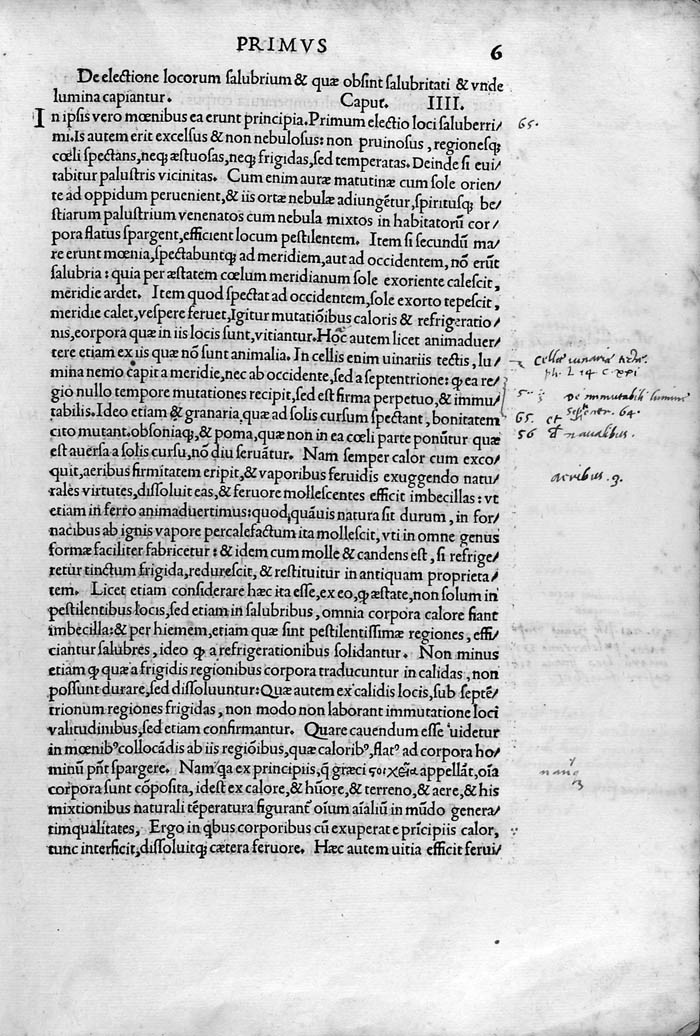 PRIMVS
6
De electione locorum salubrium & quæ obsint salubritati & vnde
lumina capiantur. Caput. IIII.
In ipsis vero mœnibus ea erunt principia. Primum electio loci saluberri/
mi. Is autem erit excelsus & non nebulosus: non pruinosus, regionesq;
cœli spectans, neq; æstuosas, neq; frigidas, sed temperatas. Deinde si eui/
tabitur palustris vicinitas. Cum enim auræ matutinæ cum sole orien/
te ad oppidum peruenient, & iis ortæ nebulæ adiungētur, spiritusq; be/
stiarum palustrium venenatos cum nebula mixtos in habitatorū cor/
pora flatus spargent, efficient locum pestilentem. Item si secundū ma/
re erunt mœnia, spectabuntq; ad meridiem, aut ad occidentem, nō erūt
salubria: quia per æstatem cœlum meridianum sole exoriente calescit,
meridie ardet. Item quod spectat ad occidentem, sole exorto tepescit,
meridie calet, vespere feruet, Igitur mutatiōibus caloris & refrigeratio/
nis, corpora quæ in iis locis sunt, vitiantur. Hoc autem licet animaduer/
tere etiam ex iis quæ nō sunt animalia. In cellis enim uinariis tectis, lu/
mina nemo capit a meridie, nec ab occidente, sed a septentrione: ꝙ ea re/
gio nullo tempore mutationes recipit, sed est firma perpetuo, & immu/
tabilis. Ideo etiam & granaria, quæ ad solis cursum spectant, bonitatem
cito mutant. obsoniaq;, & poma, quæ non in ea cœli parte ponūtur quæ
est auersa a solis cursu, nō diu seruātur. Nam semper calor cum exco/
quit, aeribus firmitatem eripit, & vaporibus feruidis exuggendo natu/
rales virtutes, dissoluit eas, & feruore mollescentes efficit imbecillas: vt
etiam in ferro animaduertimus: quod, quāuis natura sit durum, in for/
nacibus ab ignis vapore percalefactum ita mollescit, vti in omne genus
formæ faciliter fabricetur: & idem cum molle & candens est, si refrige/
retur tinctum frigida, redurescit, & restituitur in antiquam proprieta/
tem. Licet etiam considerare hæc ita esse, ex eo, ꝙ æstate, non solum in
pestilentibus locis, sed etiam in salubribus, omnia corpora calore fiant
imbecilla: & per hiemem, etiam quæ sint pestilentissimæ regiones, effi/
ciantur salubres, ideo ꝙ a refrigerationibus solidantur. Non minus
etiam ꝙ quæ a frigidis regionibus corpora traducuntur in calidas, non
possunt durare, sed dissoluuntur: Quæ autem ex calidis locis, sub septē/
trionum regiones frigidas, non modo non laborant immutatione loci
valitudinibus, sed etiam confirmantur. Quare cauendum esse uidetur
in mœnibꝰ collocādis ab iis regiōibus, quæ caloribꝰ, flatꝰ ad corpora ho/
minū pn̄t spargere. Nam qa ex principiis, q̄ græci ϛοιχεῖα appellāt, oīa
corpora sunt cōposita, idest ex calore, & hūore, & terreno, & aere, & his
mixtionibus naturali tēperatura figurant oīum aīaliū in mūdo genera/
tim qualitates, Ergo in qbus corporibus cū exuperat e prīcipiis calor,
tunc interficit, dissoluitq; cætera feruore. Hæc autem uitia efficit ferui/
65.
65. et
56
aeribus. g.